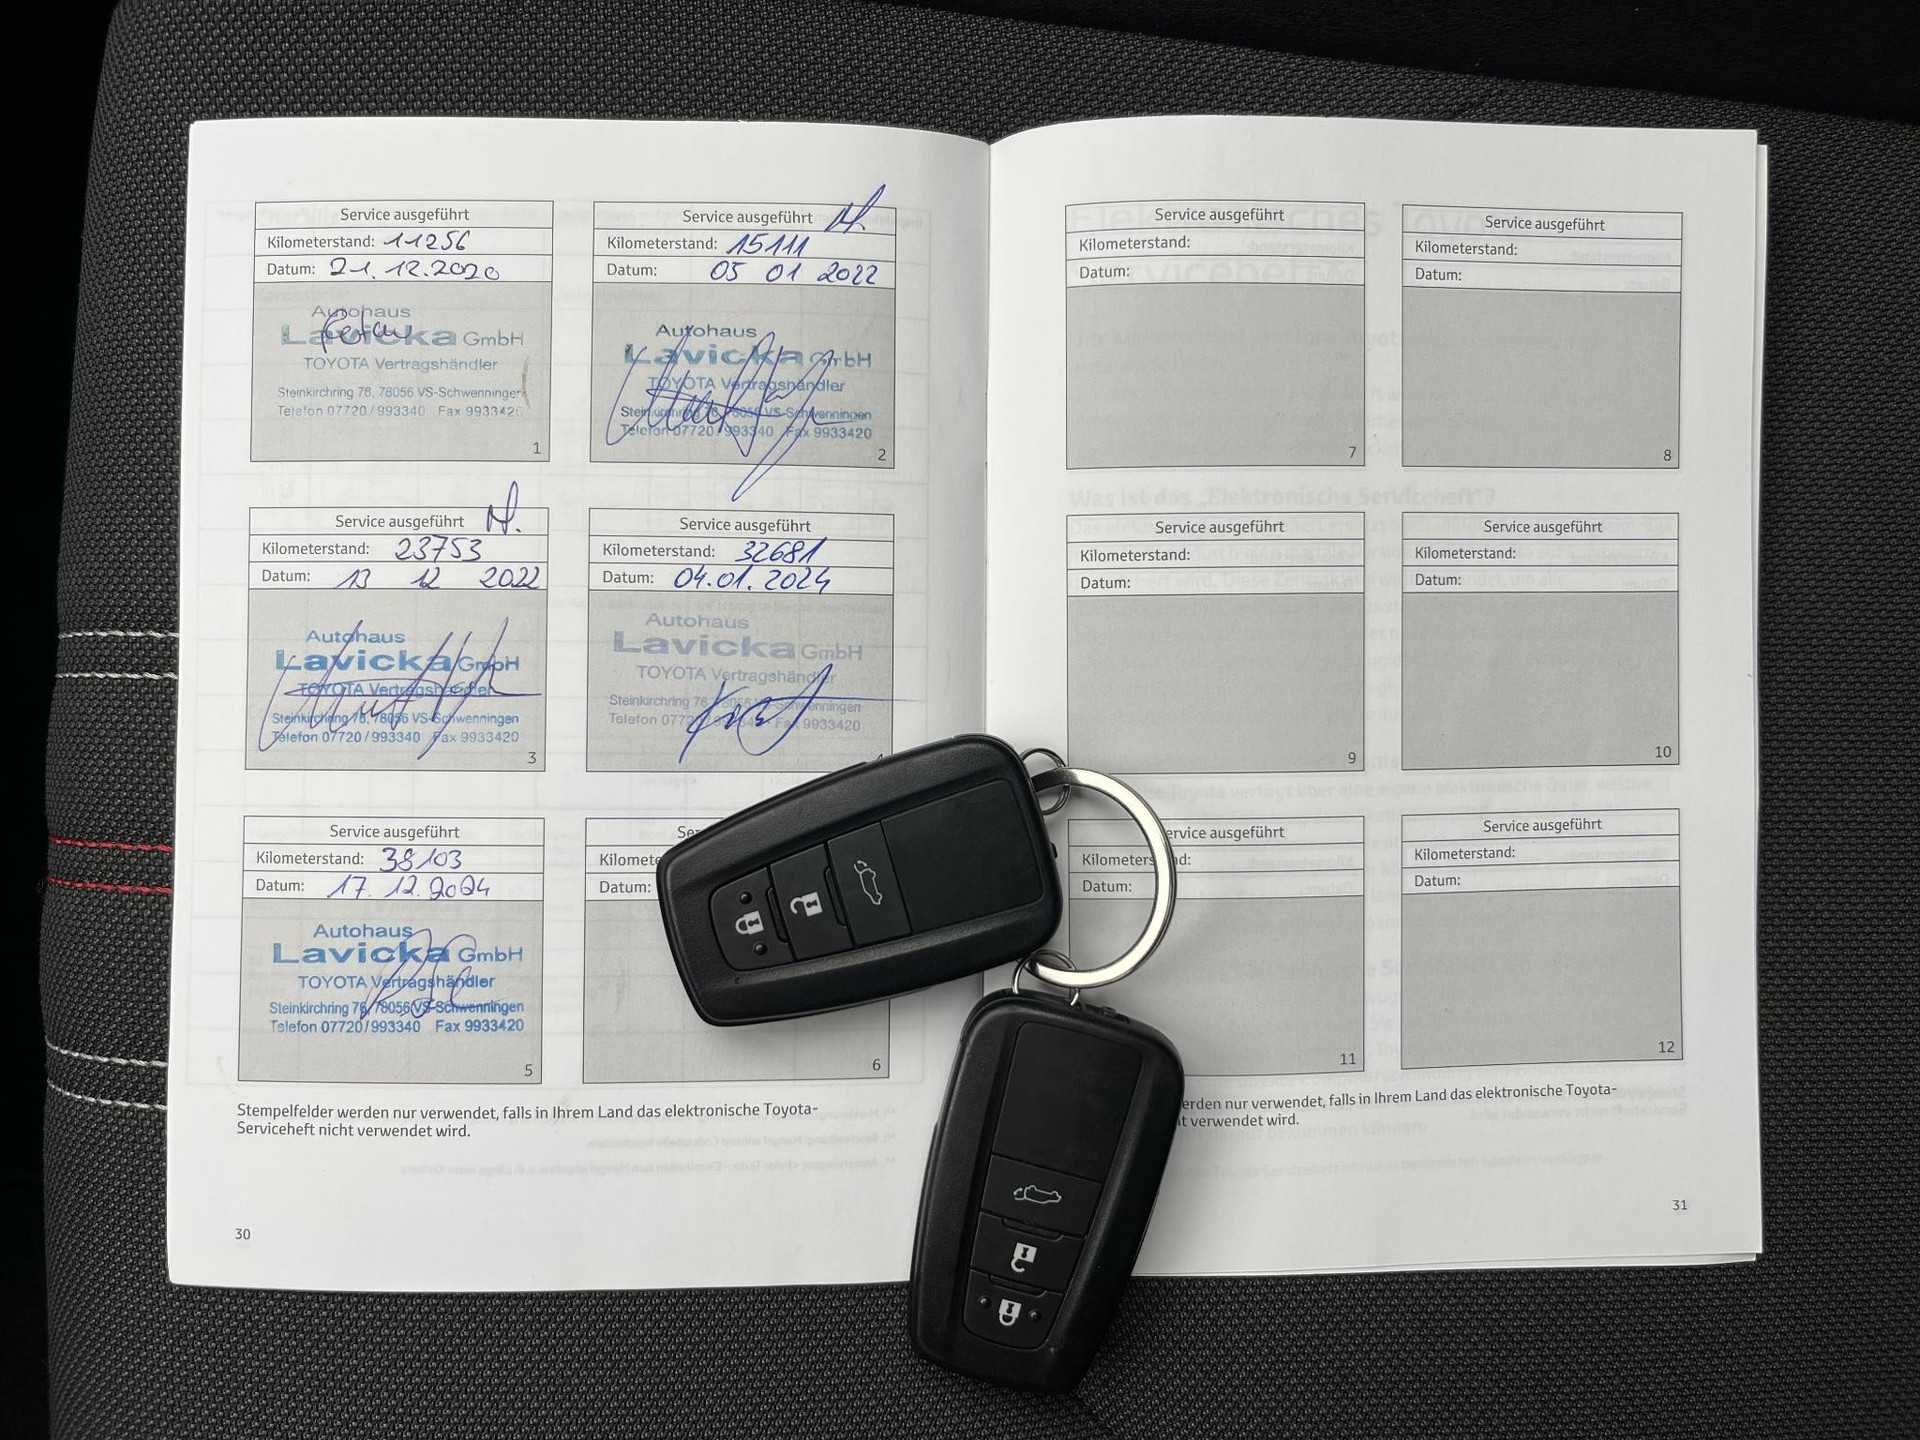 Service ausgeführt
Kilometerstand: 11256
Datum: 21.12.2020
Autohaus
Lavicka GmbH
TOYOTA Vertragshändler
Steinkirchring 76, 78056 VS-Schwenningen
Telefon 07720/993340 Fax 9933420
1
Service ausgeführt
Kilometerstand: 15111
Datum: 05 01 2022
Autohaus
Lavicka GmbH
TOYOTA Vertragshändler
Steinkirchring 76, 78056 VS-Schwenningen
Telefon 07720/993340 Fax 9933420
2
Service ausgeführt
Kilometerstand: 23753
Datum: 13 12 2022
Autohaus
Lavicka GmbH
TOYOTA Vertragshändler
Steinkirchring 76, 78056 VS-Schwenningen
Telefon 07720/993340 Fax 9933420
3
Service ausgeführt
Kilometerstand: 32681
Datum: 04.01.2024
Autohaus
Lavicka GmbH
TOYOTA Vertragshändler
Steinkirchring 76, 78056 VS-Schwenningen
Telefon 07720/993340 Fax 9933420
Service ausgeführt
Kilometerstand: 38103
Datum: 17.12.2024
Autohaus
Lavicka GmbH
TOYOTA Vertragshändler
Steinkirchring 76, 78056 VS-Schwenningen
Telefon 07720/993340 Fax 9933420
5
Ser
Kilomete
Datum:
6
Stempelfelder werden nur verwendet, falls in Ihrem Land das elektronische Toyota-
Serviceheft nicht verwendet wird.
30
Service ausgeführt
Kilometerstand:
Datum:
7
Service ausgeführt
Kilometerstand:
Datum:
8
Service ausgeführt
Kilometerstand:
Datum:
9
Service ausgeführt
Kilometerstand:
Datum:
10
ervice ausgeführt
Kilometerstand:
Datum:
11
Service ausgeführt
Kilometerstand:
Datum:
12
erden nur verwendet, falls in Ihrem Land das elektronische Toyota-
ht verwendet wird.
31